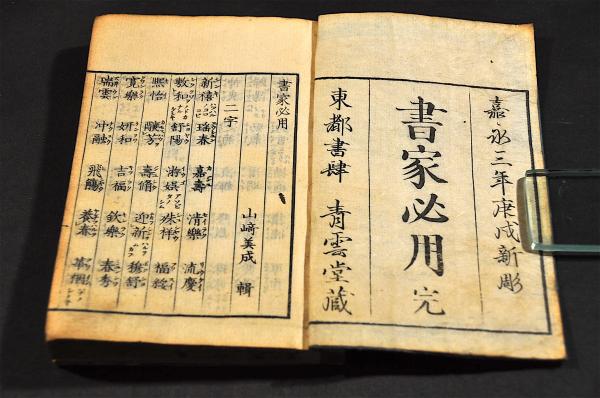 嘉永三年庚戌新彫
書家必用 完
東都書肆 青雲堂藏
書家必用
山崎美成 輯
二字
新禧 瑶春 嘉壽 清樂 流慶
敷和 舒陽 游娯 殊祥 福綏
熙怡 釀芳 壽脩 迎新 獲舒
寛樂 妍和 吉福 欽樂 春秀
瑞雲 冲融 飛觴 養春